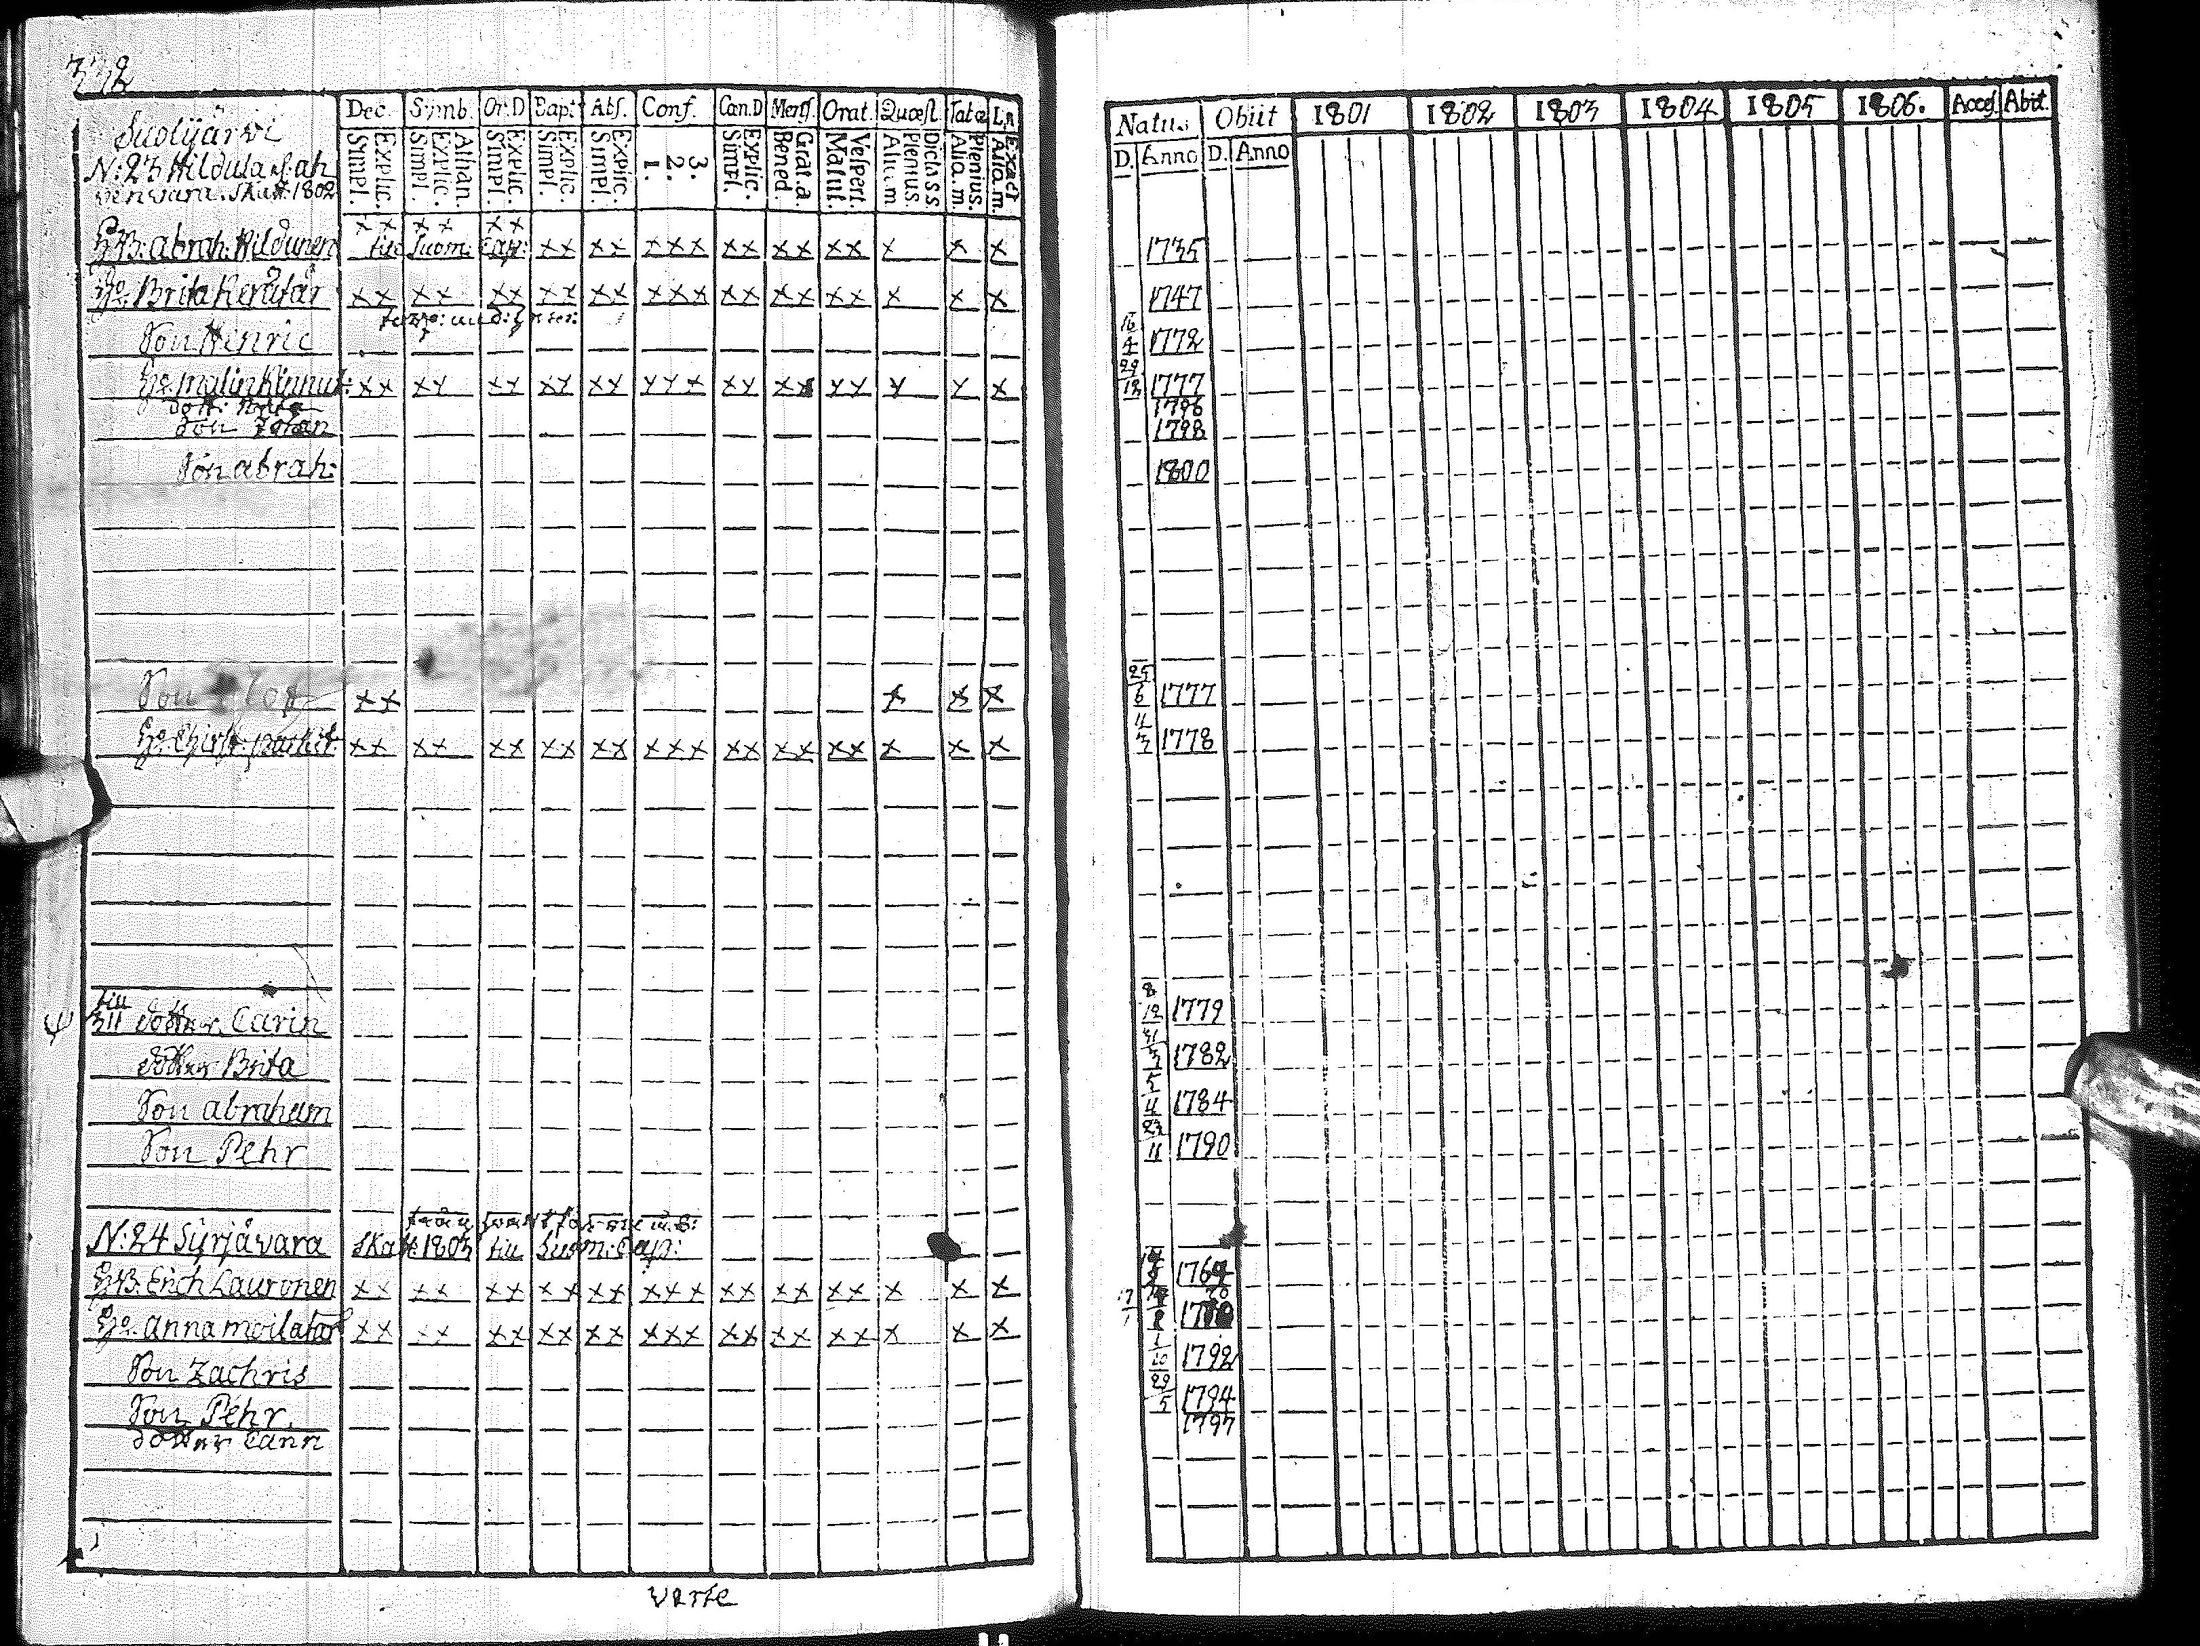 332
Dec. Symb. Or.D Bapt. Abs. Conf. Can.D Mens. Orat. Quæst. Tab.æ
Suolijärvi
N:23 Hildula
Skatt. 1802
Explic. Simpl. Athan. Explic. Simpl. Explic. Simpl. Explic. Simpl. Explic. Simpl. 3. 2. 1. Explic. Simpl. Grat.a. Bened. Vespert. Matut. Dicta S.S. Plenius. Aliq.m. Plenius. Aliq.m. Exact Aliq.m.
x x x x x x
abrah. Hildunen till Suom: Cap: xx xx xxx xx xx xx x x x
Brita xx xx xx xx xx xxx xx xx xx x x x
Son Hinric
Malin Kinnut: xx xx xx xx xx xxx xx xx xx x x x
Dott: Brita
Son Johan
Son abrah:
Son xx x x x
Christ. xx xx xx xx xx xxx xx xx xx x x x
till
Dotter Carin
Dotter Brita
Son abraham
Son Pehr
N:24 Syrjävara Skatt 1803 till Suom: Cap:
Erich Lauronen xx xx xx xx xx xxx xx xx xx x x x
anna Moilatar xx xx xx xx xx xxx xx xx xx x x x
Son Zachris
Son Pehr.
Dotter Carin
verte
Natus Obiit 1801 1802 1803 1804 1805 1806. Acces. Abit.
D. Anno D. Anno
1735
1747
16/4 1772
29/12 1777
1796
1798
1800
25/6 1777
4/3 1778
8/12 1779
31/3 1782
5/4 1784
23/11 1790
1764
1/10 1792
29/5 1794
1797